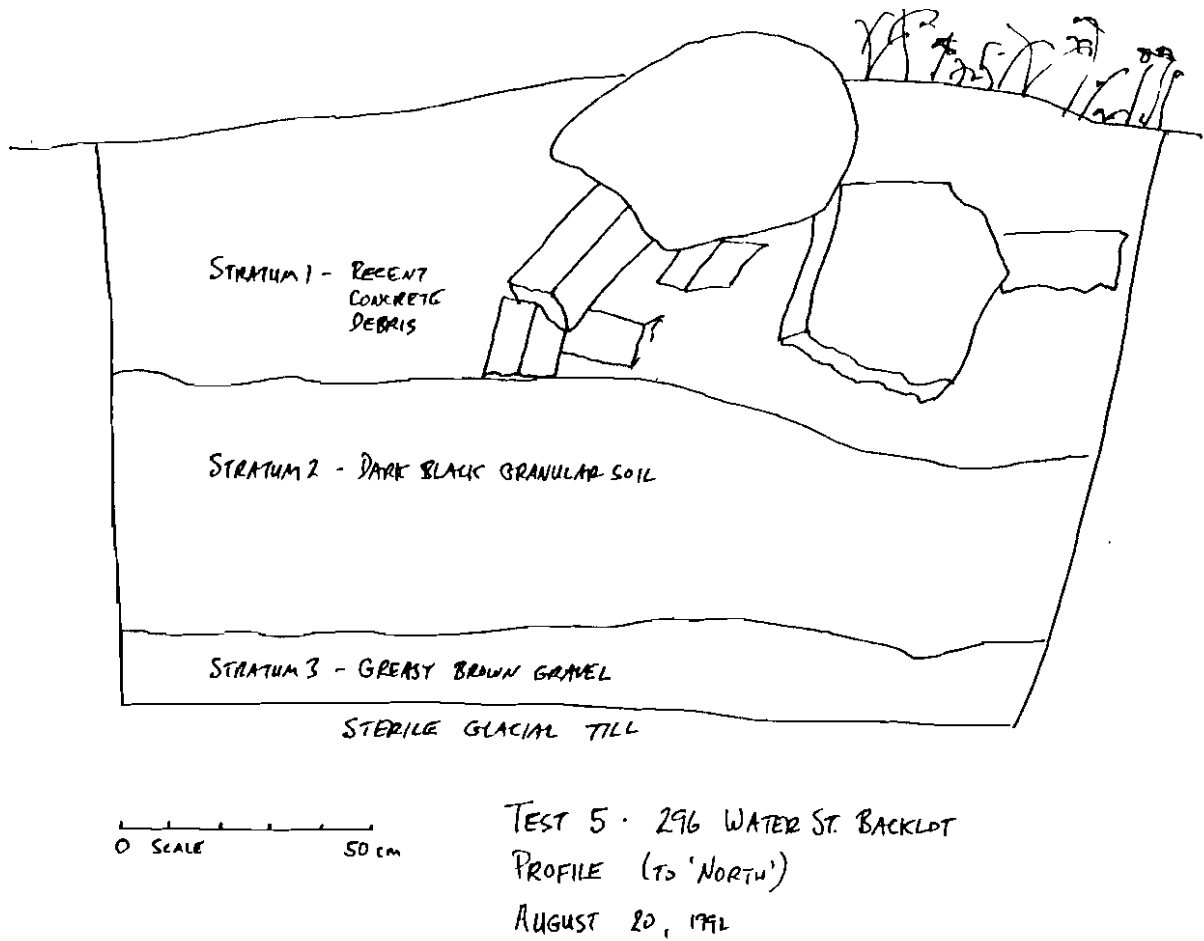 STRATUM 1 - RECENT
CONCRETE
DEBRIS
STRATUM 2 - DARK BLACK GRANULAR SOIL
STRATUM 3 - GREASY BROWN GRAVEL
STERILE GLACIAL TILL
0 SCALE 50 cm
TEST 5 · 296 WATER ST. BACKLOT
PROFILE (TO 'NORTH')
AUGUST 20, 1992